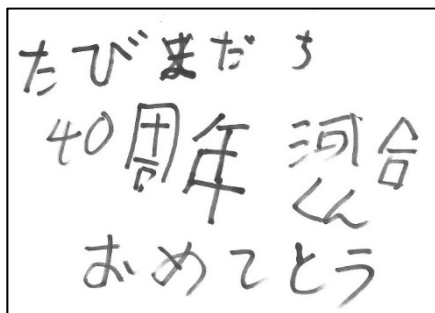 たびまだち
40周年 河合
くん
おめでとう